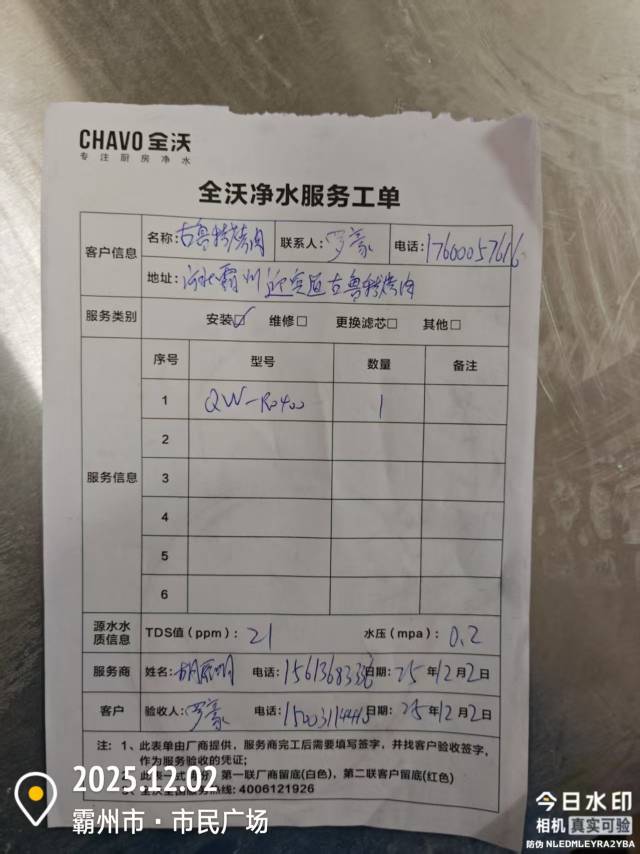 CHAVO 全沃
专注厨房净水
全沃净水服务工单
客户信息 名称: 古鲁特烤肉 联系人: 罗豪 电话: 17600057616
地址: 河北霸州迎宾道古鲁特烤肉
服务类别 安装☑ 维修□ 更换滤芯□ 其他□
服务信息 序号 型号 数量 备注
1 QW-RO400 1
2
3
4
5
6
源水水质信息 TDS值(ppm): 21 水压(mpa): 0.2
服务商 姓名: 电话: 日期: 25年12月2日
客户 验收人: 罗豪 电话: 15003114445 日期: 25年12月2日
注: 1、此表单由厂商提供，服务商完工后需要填写签字，并找客户验收签字，
作为服务验收的凭证;
2、此表一式 第一联厂商留底(白色)，第二联客户留底(红色)
热线: 4006121926
2025.12.02
霸州市·市民广场
今日水印
相机 真实可验
防伪 NLEDMLEYRA2YBA